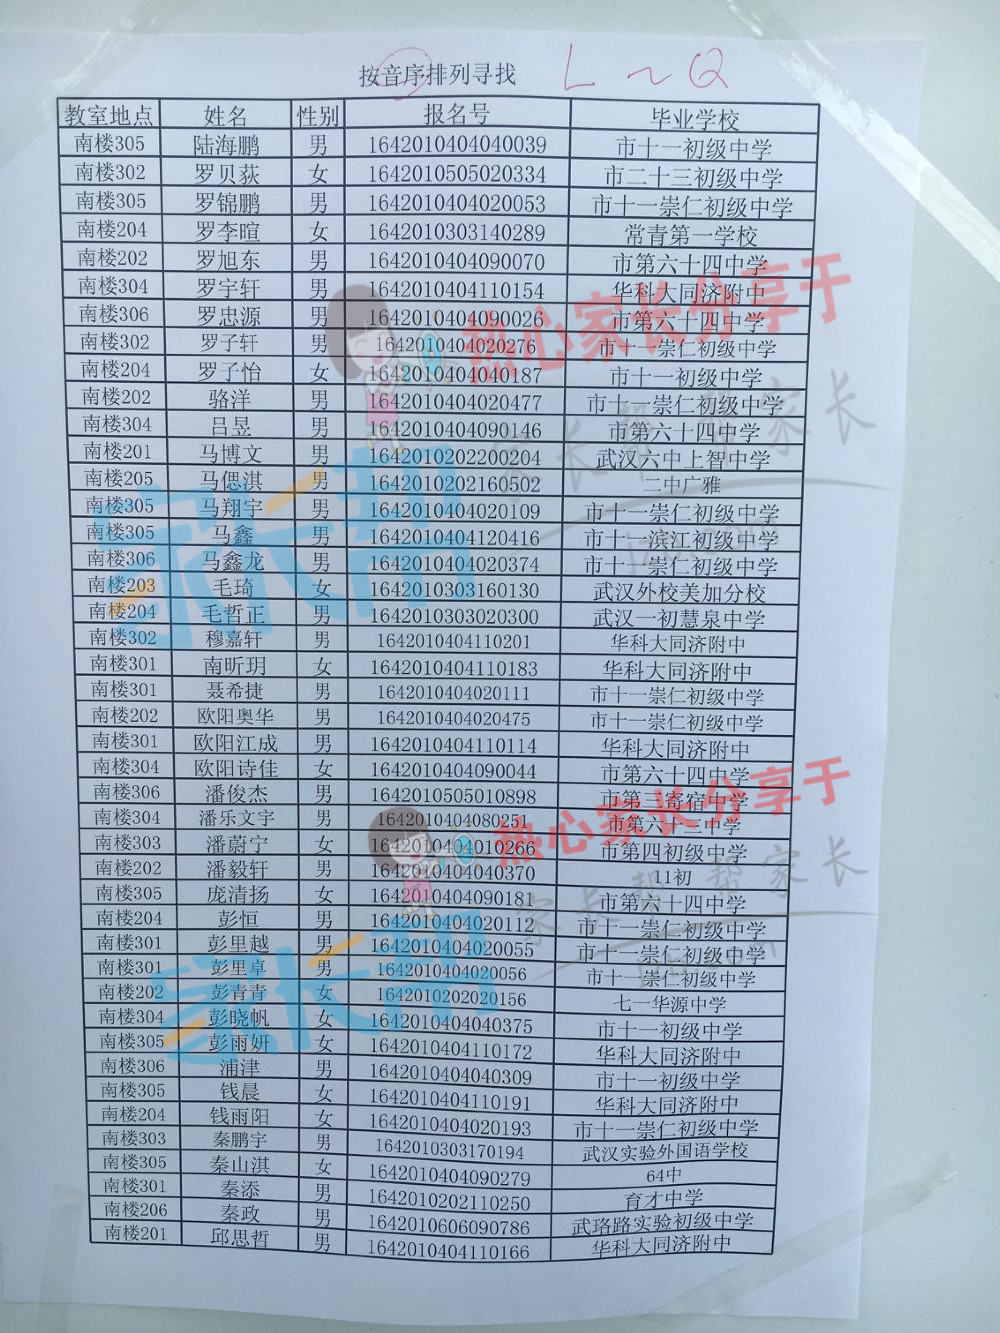 按音序排列寻找 L～Q
教室地点 姓名 性别 报名号 毕业学校
南楼305 陆海鹏 男 1642010404040039 市十一初级中学
南楼302 罗贝荻 女 1642010505020334 市二十三初级中学
南楼305 罗锦鹏 男 1642010404020053 市十一崇仁初级中学
南楼204 罗李暄 女 1642010303140289 常青第一学校
南楼202 罗旭东 男 1642010404090070 市第六十四中学
南楼304 罗宇轩 男 1642010404110154 华科大同济附中
南楼306 罗忠源 男 1642010404090026 市第六十四中学
南楼302 罗子轩 男 1642010404020276 市十一崇仁初级中学
南楼204 罗子怡 女 1642010404040187 市十一初级中学
南楼202 骆洋 男 1642010404020477 市十一崇仁初级中学
南楼304 吕昱 男 1642010404090146 市第六十四中学
南楼201 马博文 男 1642010202200204 武汉六中上智中学
南楼205 马偲淇 男 1642010202160502 二中广雅
南楼305 马翔宇 男 1642010404020109 市十一崇仁初级中学
南楼305 马鑫 男 1642010404120416 市十一滨江初级中学
南楼306 马鑫龙 男 1642010404020374 市十一崇仁初级中学
南楼203 毛琦 女 1642010303160130 武汉外校美加分校
南楼204 毛哲正 男 1642010303020300 武汉一初慧泉中学
南楼302 穆嘉轩 男 1642010404110201 华科大同济附中
南楼301 南昕玥 女 1642010404110183 华科大同济附中
南楼301 聂希捷 男 1642010404020111 市十一崇仁初级中学
南楼202 欧阳奥华 男 1642010404020475 市十一崇仁初级中学
南楼301 欧阳江成 男 1642010404110114 华科大同济附中
南楼304 欧阳诗佳 女 1642010404090044 市第六十四中学
南楼306 潘俊杰 男 1642010505010898 市第三寄宿中学
南楼304 潘乐文宇 男 1642010404080251 市第六十三中学
南楼303 潘蔚宁 女 1642010404010266 市第四初级中学
南楼202 潘毅轩 男 1642010404040370 11初
南楼305 庞清扬 女 1642010404090181 市第六十四中学
南楼204 彭恒 男 1642010404020112 市十一崇仁初级中学
南楼301 彭里越 男 1642010404020055 市十一崇仁初级中学
南楼301 彭里卓 男 1642010404020056 市十一崇仁初级中学
南楼202 彭青青 女 1642010202020156 七一华源中学
南楼304 彭晓帆 女 1642010404040375 市十一初级中学
南楼305 彭雨妍 女 1642010404110172 华科大同济附中
南楼306 浦津 男 1642010404040309 市十一初级中学
南楼305 钱晨 女 1642010404110191 华科大同济附中
南楼204 钱雨阳 女 1642010404020193 市十一崇仁初级中学
南楼303 秦鹏宇 男 1642010303170194 武汉实验外国语学校
南楼305 秦山淇 女 1642010404090279 64中
南楼301 秦添 男 1642010202110250 育才中学
南楼206 秦政 男 1642010606090786 武珞路实验初级中学
南楼201 邱思哲 男 1642010404110166 华科大同济附中
热心家长分享于
家长帮 帮家长
家长帮
热心家长分享于
家长帮 帮家长
家长帮